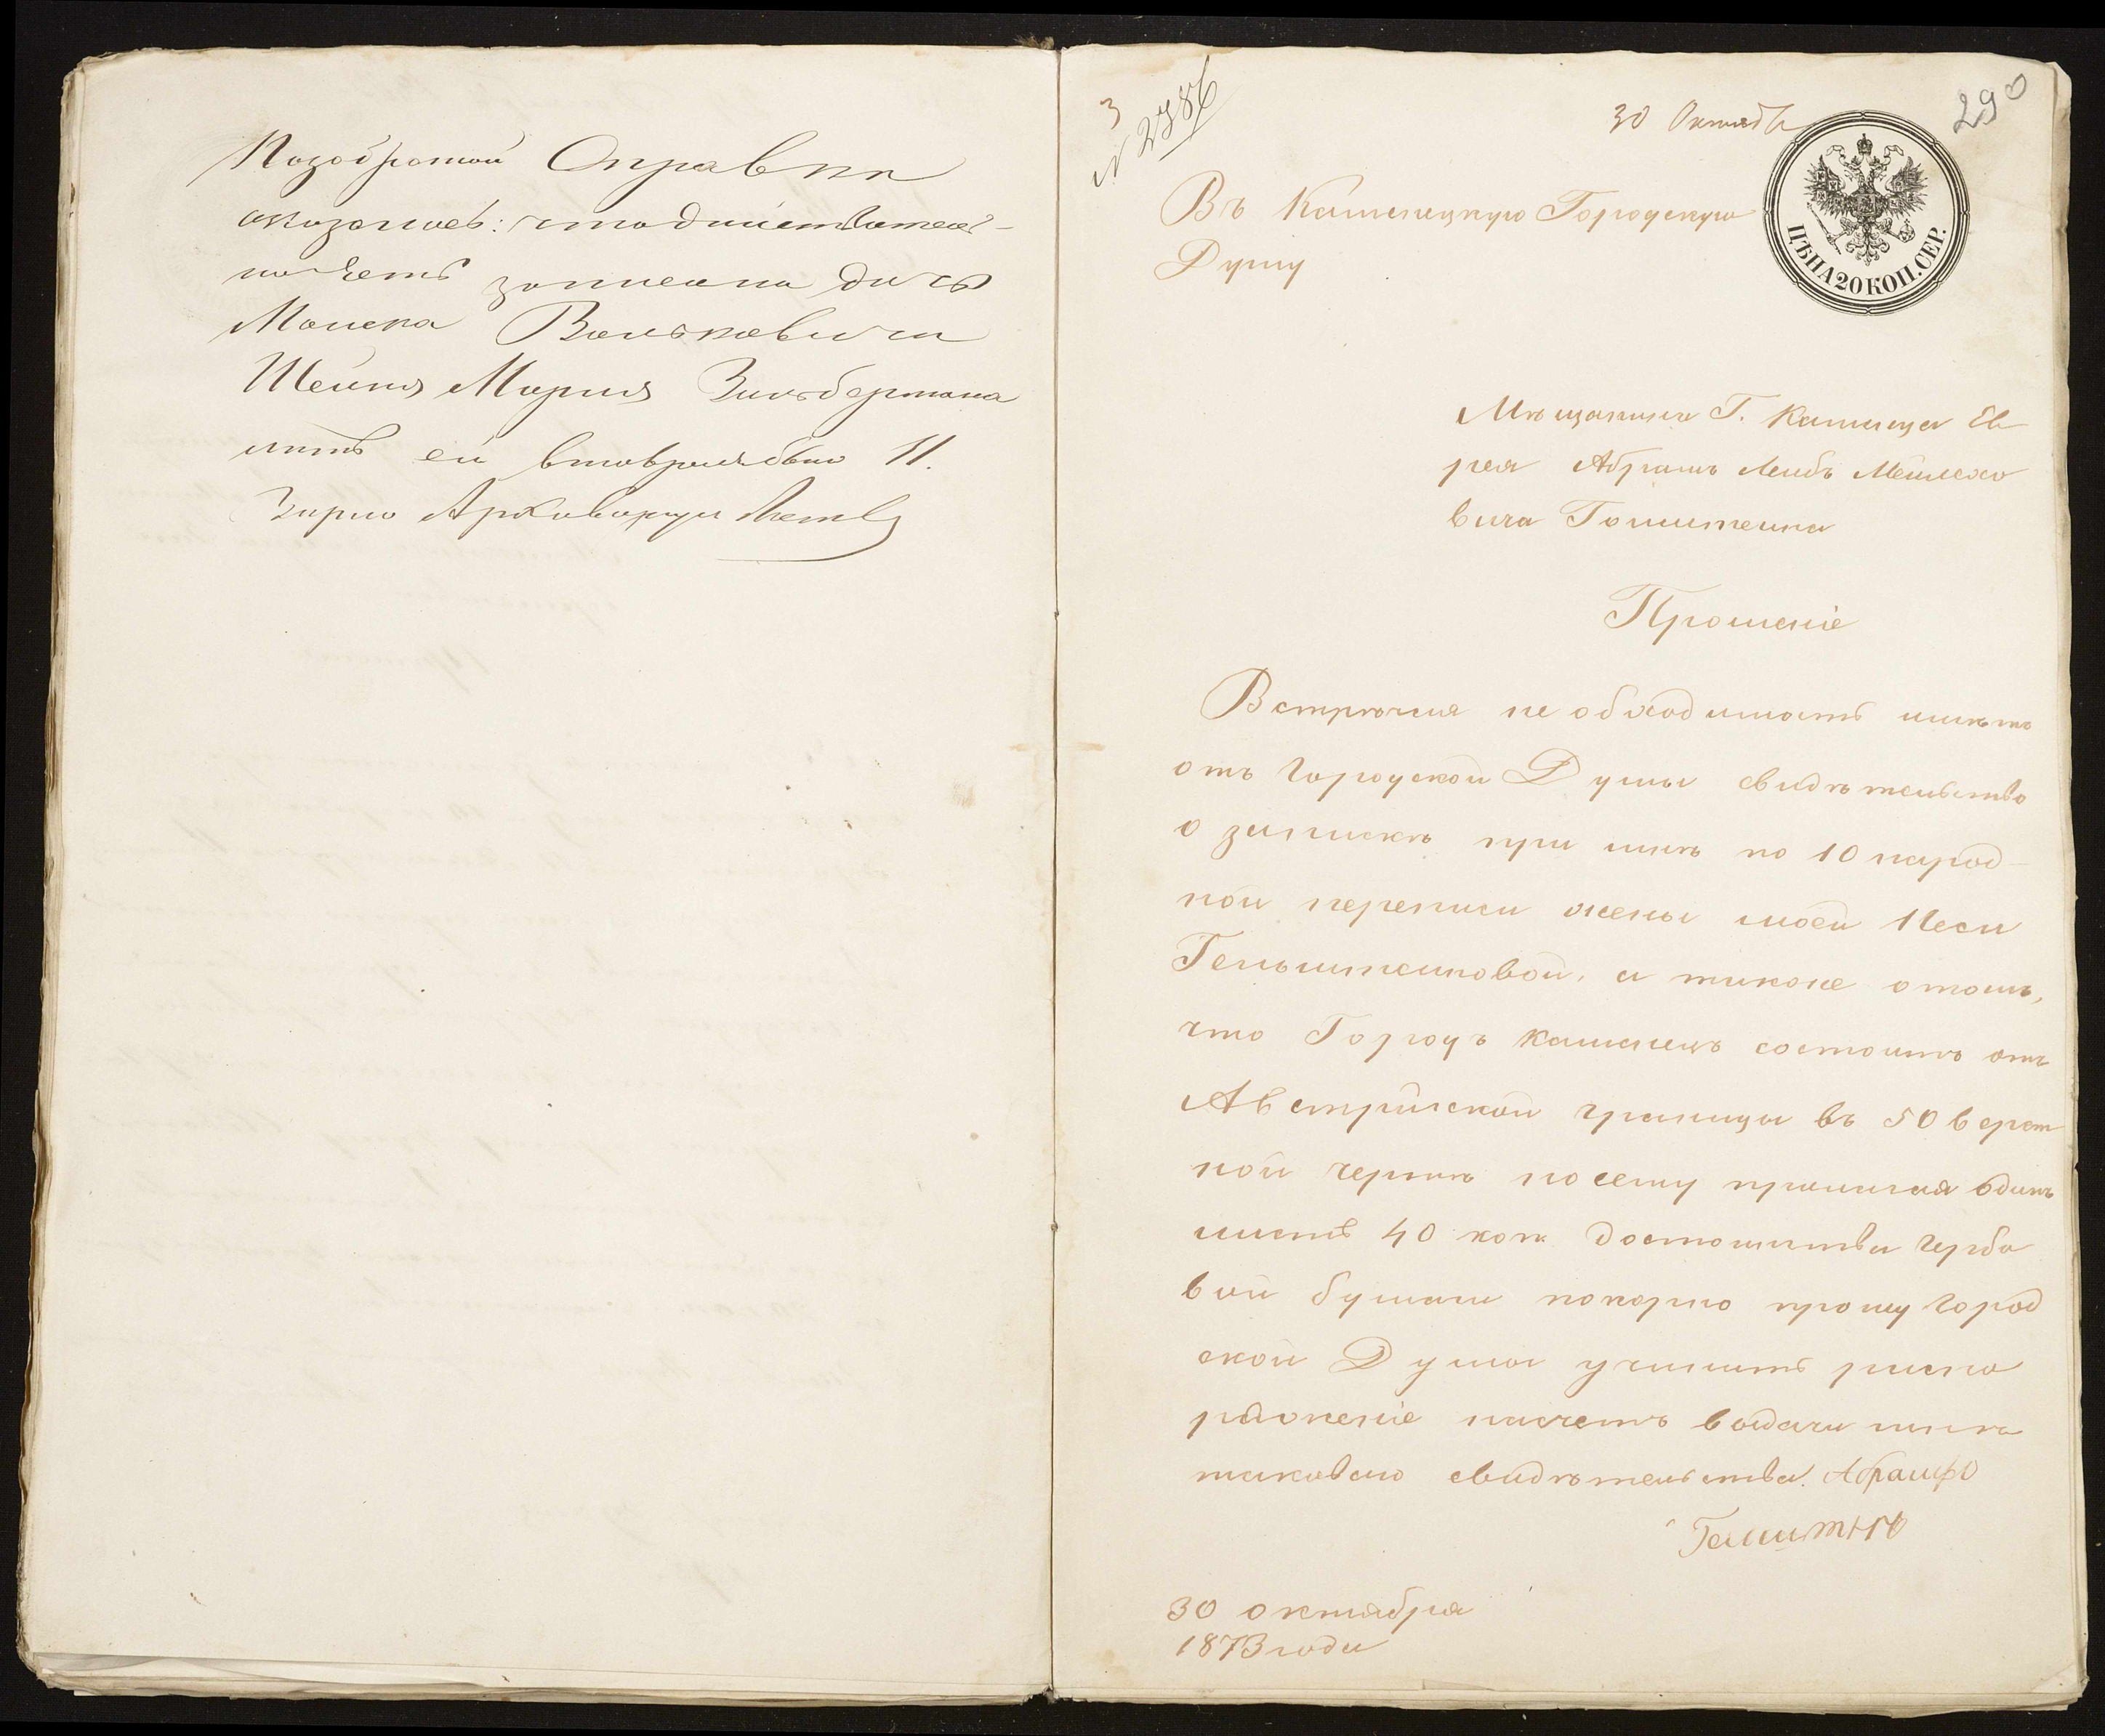 По забратой Справки
оказалось: что действитель-
но четь записана дочь
Мошка Вольковича
Шейня Мария Зильбермана
летъ ей второй было 11.
Зирно Архивариусъ
3
№ 2786
30 Октяб
290
Въ Каменецкую Городскую
Думу
ЦѢНА 20 КОП. СЕР.
Мѣщанина Г. Каменца Ев
рея Абрамъ Лейбъ Мейлехо
вича Гольштейна
Прошеніе
Встрѣчая не обходимость имѣть
отъ Городской Думы свидѣтельство
о запискѣ при мнѣ по 10 народ-
ной переписи жены моей Песи
Гольштейновой, а также о томъ,
что Городъ Каменецъ состоитъ отъ
Австрійской границы въ 50 верст
ной чертѣ по сему прилагая одинъ
листъ 40 коп. достоинства Гербо
вой бумаги покорно прошу Город
ской Думы учинить распо
ряженіе насчетъ выдачи мнѣ
таковаго свидѣтельства. Абрамъ
30 октября
1873 года